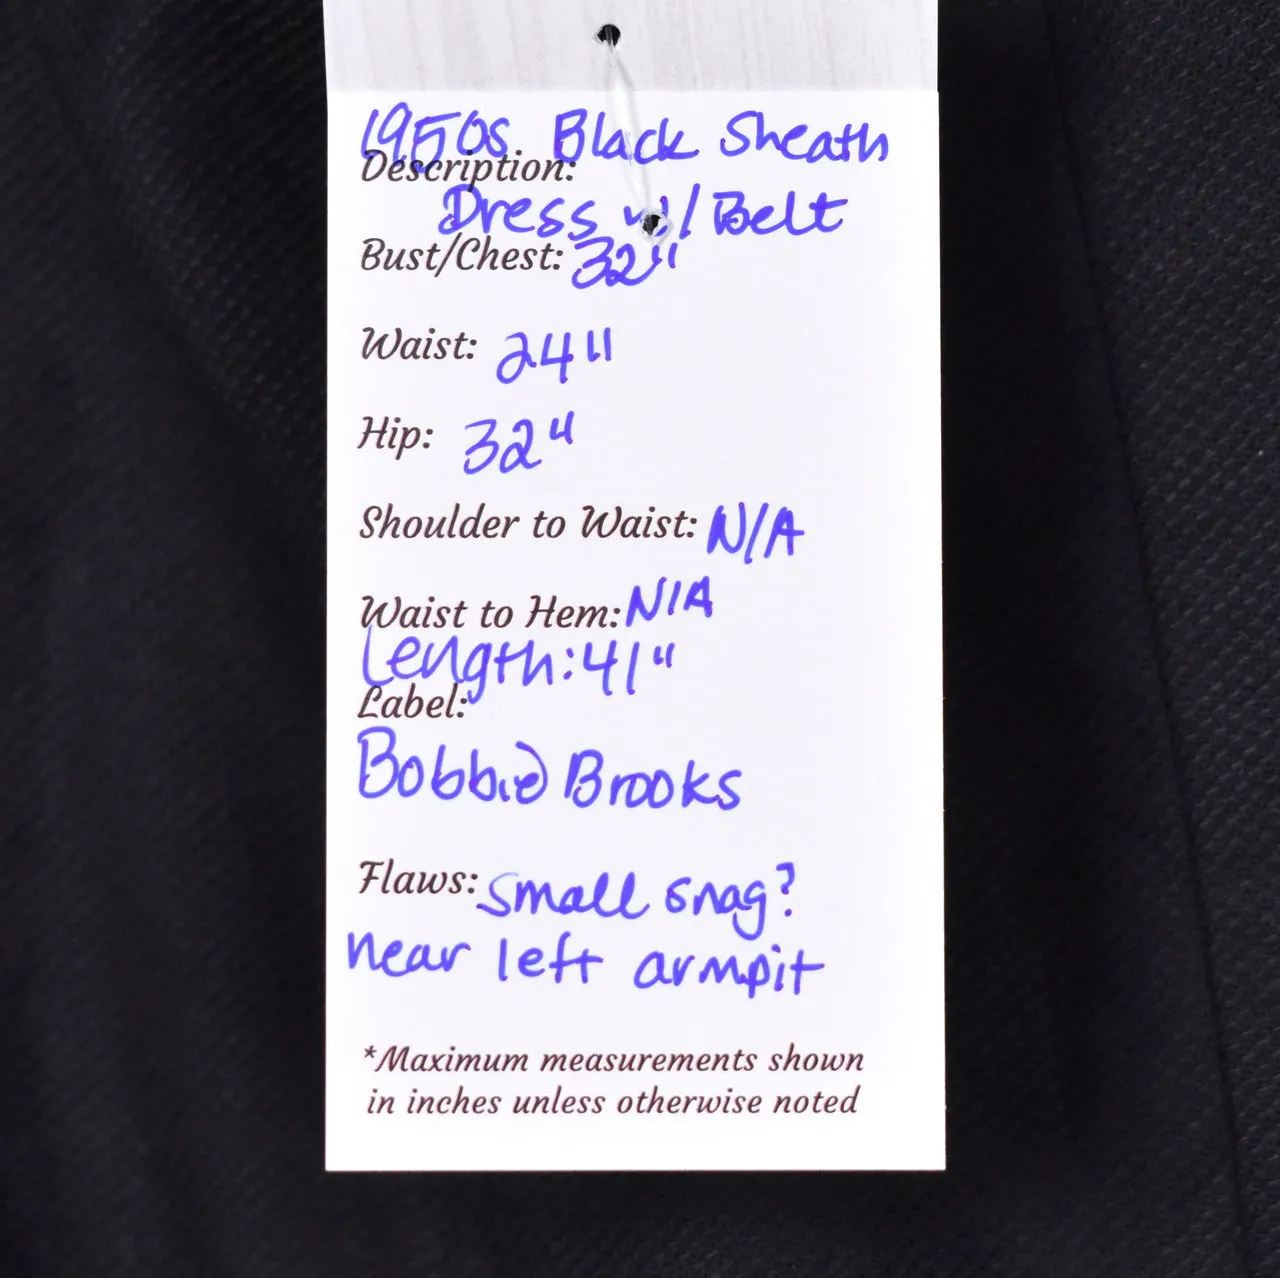 1950s Black Sheath
Description:
Dress w/ Belt
Bust/Chest: 32"
Waist: 24"
Hip: 32"
Shoulder to Waist: N/A
Waist to Hem: N/A
Length: 41"
Label:
Bobbie Brooks
Flaws: small snag?
near left armpit
*Maximum measurements shown
in inches unless otherwise noted